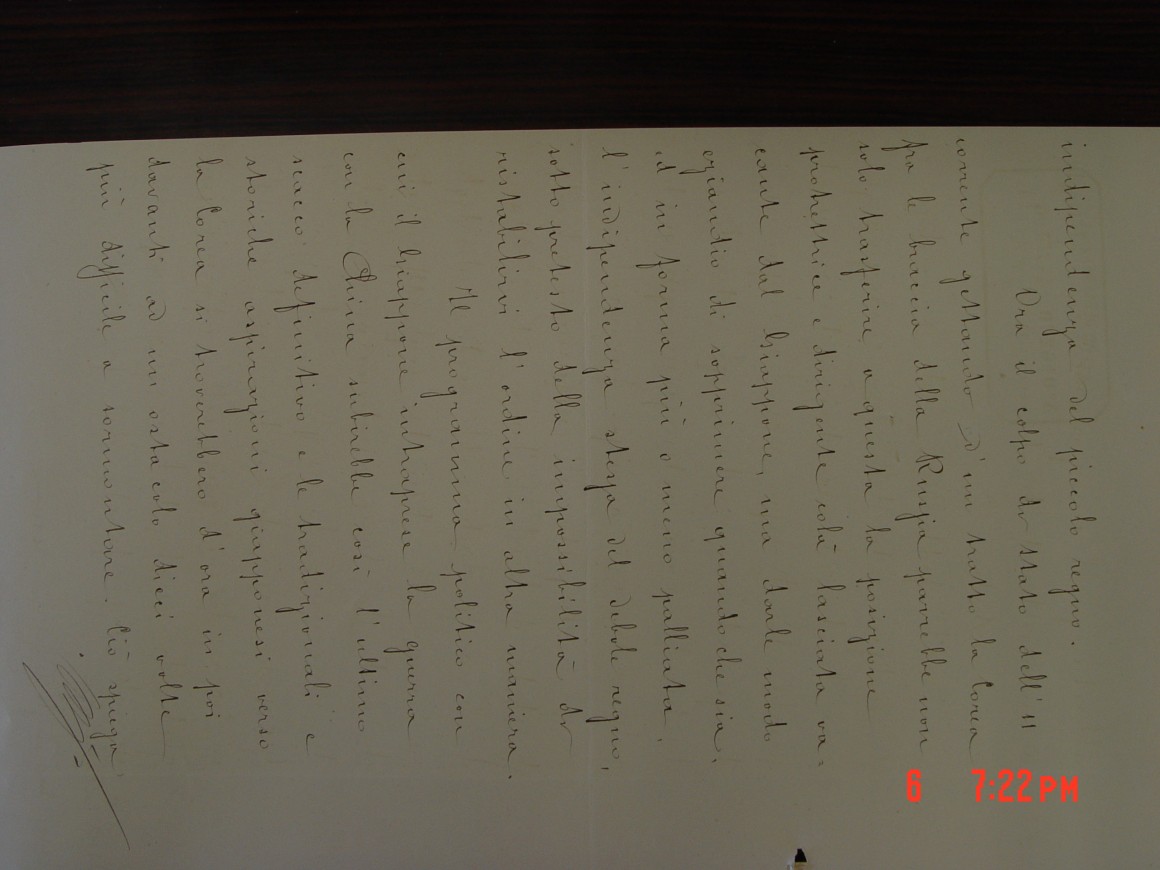 indipendenza del piccolo regno.
Ora il colpo di stato dell' 11
corrente gettando d'un tratto la Corea
fra le braccia della Russia parrebbe non
solo trasferire a questa la posizione
protettrice e dirigente colà lasciata va-
cante dal Giappone, ma darle modo
eziandio di sopprimere quando che sia,
ed in forma più o meno palliata,
l'indipendenza stessa del debole regno,
sotto pretesto della impossibilità di
ristabilirvi l'ordine in altra maniera.
Il programma politico con
cui il Giappone intraprese la guerra
con la China subirebbe così l'ultimo
scacco definitivo e le tradizionali e
storiche aspirazioni giapponesi verso
la Corea si troverebbero d'ora in poi
davanti ad un ostacolo dieci volte
più difficile a sormontare. Ciò spiega
6 7:22 PM